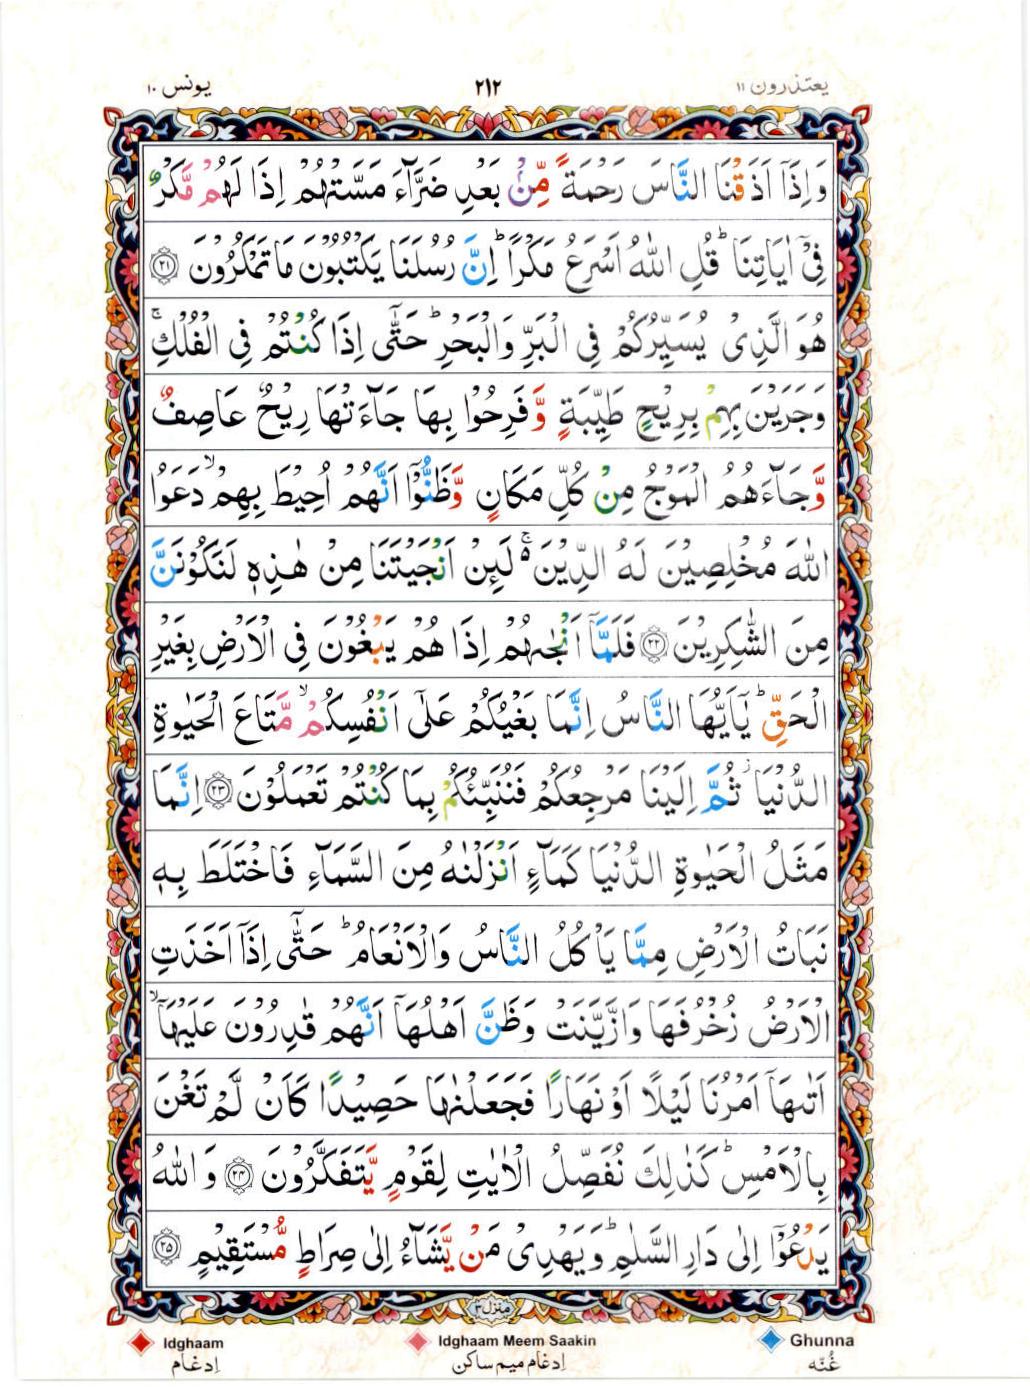 یعتذرون ۱۱
۲۱۲
یونس ۱۰
وَاِذَاۤ اَذَقْنَا النَّاسَ رَحْمَةً مِّنْۢ بَعْدِ ضَرَّآءَ مَسَّتْهُمْ اِذَا لَهُمْ مَّكْرٌ
فِیْۤ اٰیَاتِنَا ؕ قُلِ اللّٰهُ اَسْرَعُ مَكْرًا ؕ اِنَّ رُسُلَنَا یَكْتُبُوْنَ مَا تَمْكُرُوْنَ ﴿۲۱﴾
هُوَ الَّذِیْ یُسَیِّرُكُمْ فِی الْبَرِّ وَالْبَحْرِ ؕ حَتّٰۤی اِذَا كُنْتُمْ فِی الْفُلْكِ ۚ
وَجَرَیْنَ بِهِمْ بِرِیْحٍ طَیِّبَةٍ وَّفَرِحُوْا بِهَا جَآءَتْهَا رِیْحٌ عَاصِفٌ
وَّجَآءَهُمُ الْمَوْجُ مِنْ كُلِّ مَكَانٍ وَّظَنُّوْۤا اَنَّهُمْ اُحِیْطَ بِهِمْ ۙ دَعَوُا
اللّٰهَ مُخْلِصِیْنَ لَهُ الدِّیْنَ ۬ۚ لَىِٕنْ اَنْجَیْتَنَا مِنْ هٰذِهٖ لَنَكُوْنَنَّ
مِنَ الشّٰكِرِیْنَ ﴿۲۲﴾ فَلَمَّاۤ اَنْجٰىهُمْ اِذَا هُمْ یَبْغُوْنَ فِی الْاَرْضِ بِغَیْرِ
الْحَقِّ ؕ یٰۤاَیُّهَا النَّاسُ اِنَّمَا بَغْیُكُمْ عَلٰۤی اَنْفُسِكُمْ ۙ مَّتَاعَ الْحَیٰوةِ
الدُّنْیَا ؗ ثُمَّ اِلَیْنَا مَرْجِعُكُمْ فَنُنَبِّئُكُمْ بِمَا كُنْتُمْ تَعْمَلُوْنَ ﴿۲۳﴾ اِنَّمَا
مَثَلُ الْحَیٰوةِ الدُّنْیَا كَمَآءٍ اَنْزَلْنٰهُ مِنَ السَّمَآءِ فَاخْتَلَطَ بِهٖ
نَبَاتُ الْاَرْضِ مِمَّا یَاْكُلُ النَّاسُ وَالْاَنْعَامُ ؕ حَتّٰۤی اِذَاۤ اَخَذَتِ
الْاَرْضُ زُخْرُفَهَا وَازَّیَّنَتْ وَظَنَّ اَهْلُهَاۤ اَنَّهُمْ قٰدِرُوْنَ عَلَیْهَاۤ ۙ
اَتٰىهَاۤ اَمْرُنَا لَیْلًا اَوْ نَهَارًا فَجَعَلْنٰهَا حَصِیْدًا كَاَنْ لَّمْ تَغْنَ
بِالْاَمْسِ ؕ كَذٰلِكَ نُفَصِّلُ الْاٰیٰتِ لِقَوْمٍ یَّتَفَكَّرُوْنَ ﴿۲۴﴾ وَاللّٰهُ
یَدْعُوْۤا اِلٰی دَارِ السَّلٰمِ ؕ وَیَهْدِیْ مَنْ یَّشَآءُ اِلٰی صِرَاطٍ مُّسْتَقِیْمٍ ﴿۲۵﴾
منزل ۳
Idghaam
Idghaam Meem Saakin
Ghunna
اِدغام
اِدغام میم ساکن
غُنّه